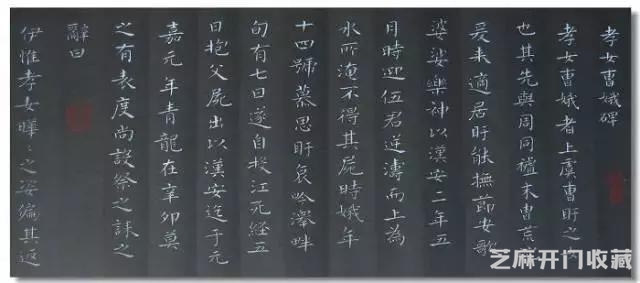 孝女曹娥碑
孝女曹娥者上虞曹盱之女
也其先與周同祖末胄荒
爰来適居盱能撫節安歌
婆娑樂神以漢安二年五
月時迎伍君逆濤而上為
水所淹不得其屍時娥年
十四號慕思盱哀吟澤畔
旬有七日遂自投江死経五
日抱父屍出以漢安迄于元
嘉元年青龍在辛卯莫
之有表度尚設祭之誄之
辭曰
伊惟孝女曄〻之姿偏其返
芝麻开门收藏